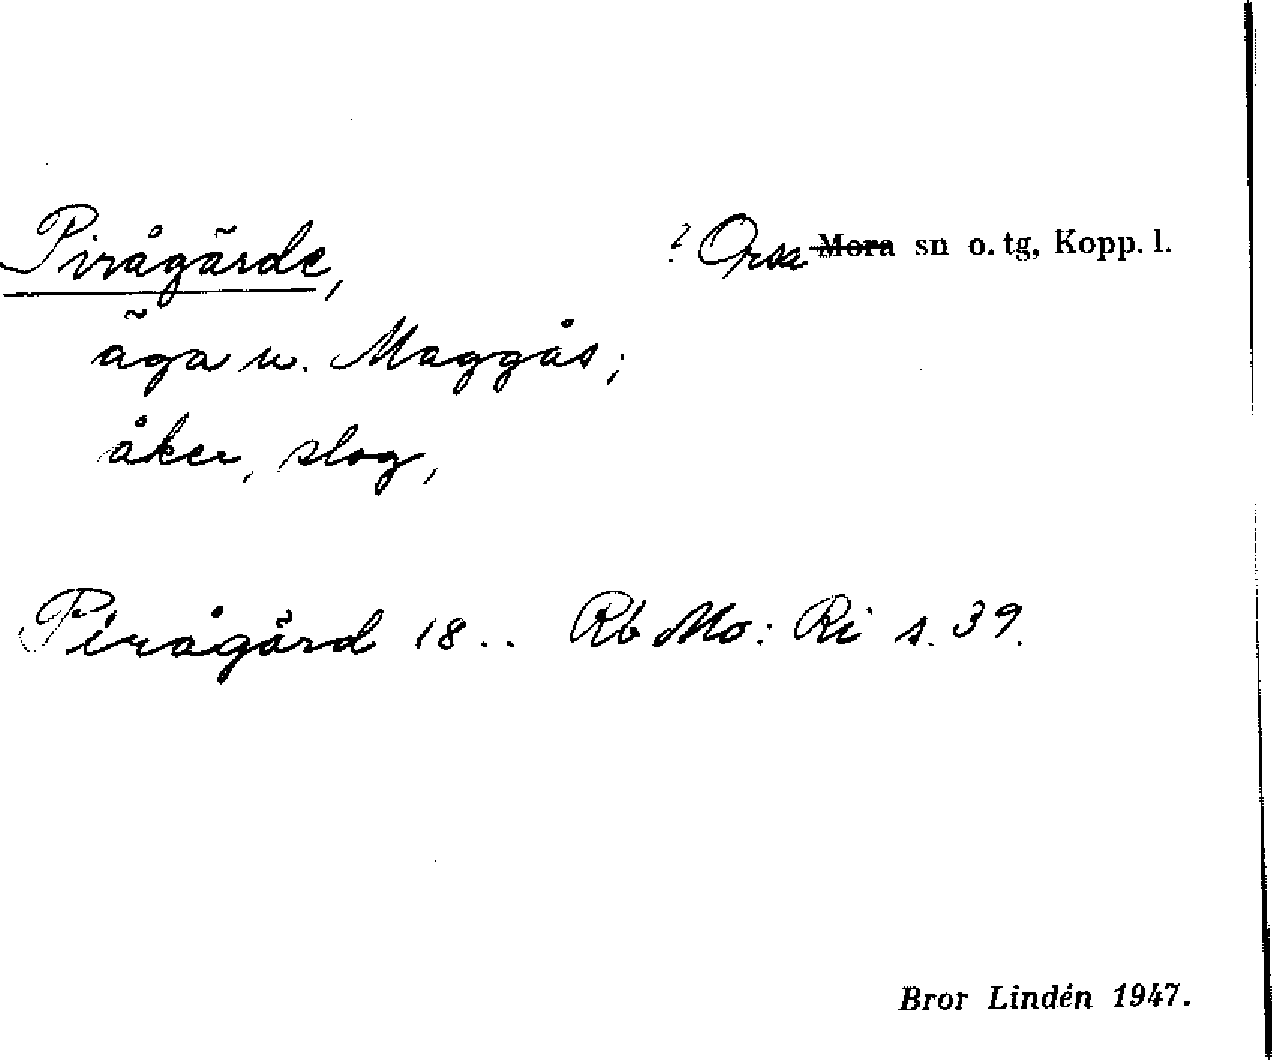 Pirågärde, ? Orsa Mora sn o. tg, Kopp. l.
äga u. Maggås;
åker, slog,
Pirågärd 18.. Rb Mo: Ri s. 39.
Bror Lindén 1947.